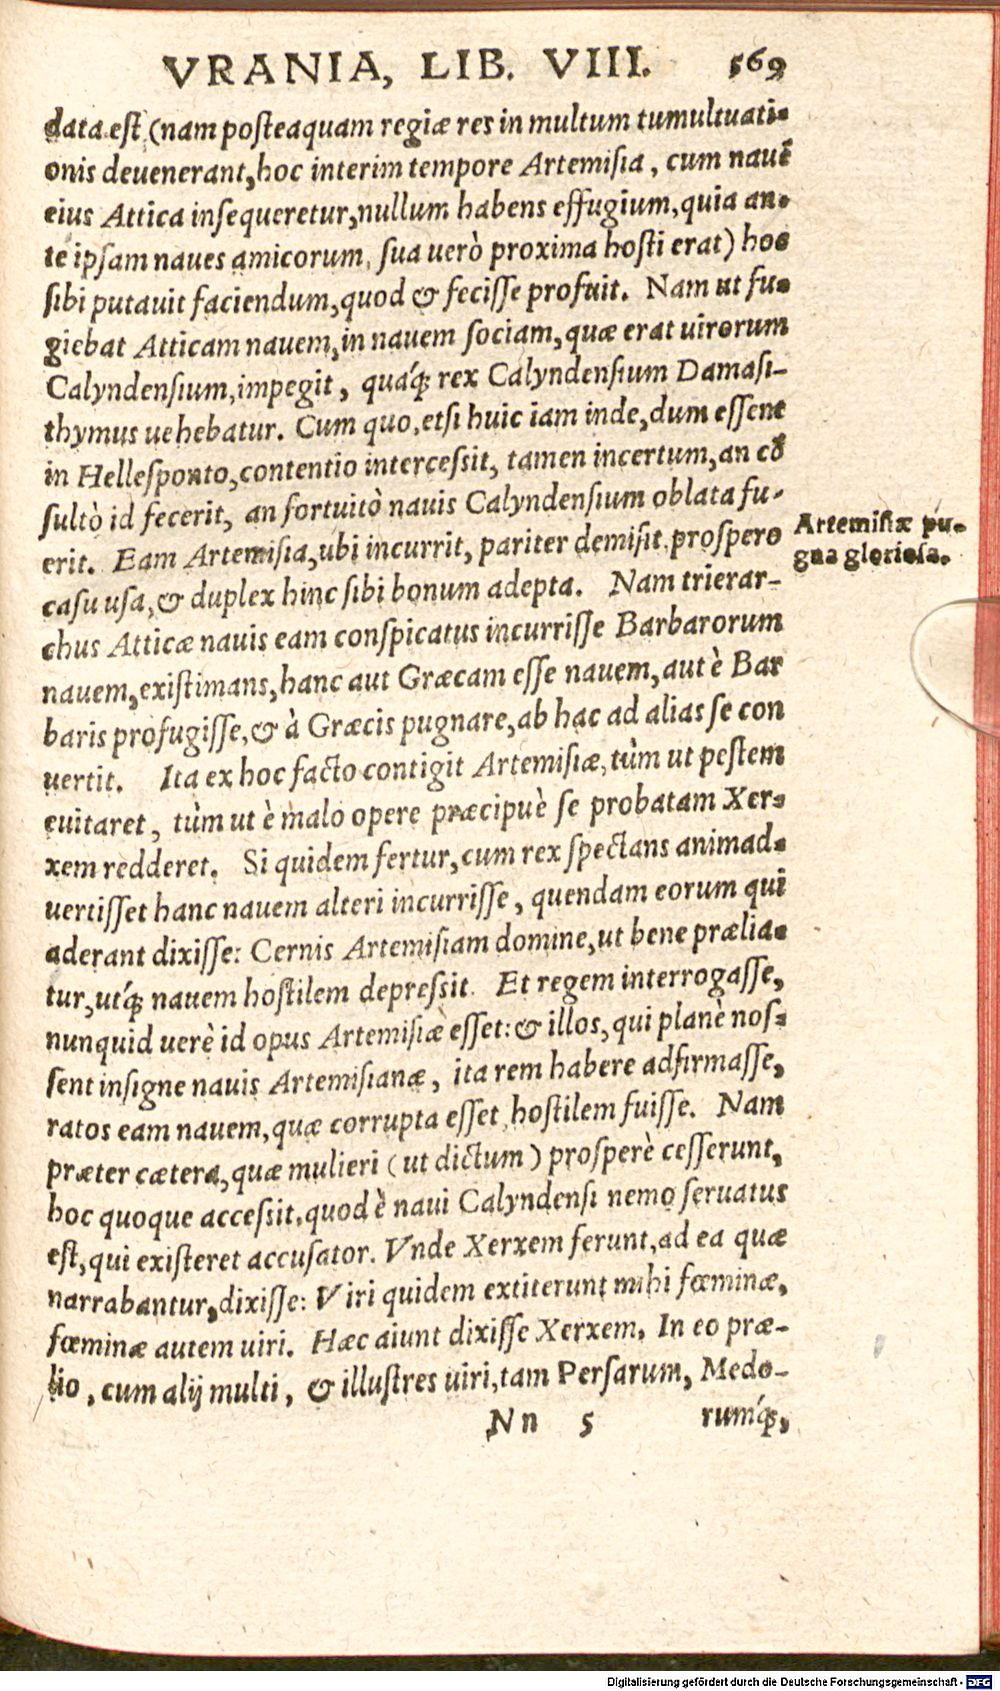 VRANIA, LIB. VIII. 569
data est (nam posteaquam regiæ res in multum tumultuati-
onis deuenerant, hoc interim tempore Artemisia, cum nauẽ
eius Attica insequeretur, nullum habens effugium, quia an-
te ipsam naues amicorum, sua uerò proxima hosti erat) hoc
sibi putauit faciendum, quod & fecisse profuit. Nam ut fu-
giebat Atticam nauem, in nauem sociam, quæ erat uirorum
Calyndensium, impegit, quáq; rex Calyndensium Damasi-
thymus uehebatur. Cum quo, etsi huic iam inde, dum essent
in Hellesponto, contentio intercessit, tamen incertum, an cõ
sultò id fecerit, an fortuitò nauis Calyndensium oblata fu-
erit. Eam Artemisia, ubi incurrit, pariter demisit, prospero
Artemisiæ pu-
gna gloriosa.
casu usa, & duplex hinc sibi bonum adepta. Nam trierar-
chus Atticæ nauis eam conspicatus incurrisse Barbarorum
nauem, existimans, hanc aut Græcam esse nauem, aut è Bar
baris profugisse, & à Græcis pugnare, ab hac ad alias se con
uertit. Ita ex hoc facto contigit Artemisiæ, tùm ut pestem
euitaret, tùm ut è malo opere præcipuè se probatam Xer-
xem redderet. Si quidem fertur, cum rex spectans animad-
uertisset hanc nauem alteri incurrisse, quendam eorum qui
aderant dixisse: Cernis Artemisiam domine, ut bene prælia-
tur, utq́; nauem hostilem depressit. Et regem interrogasse,
nunquid uerè id opus Artemisiæ esset: & illos, qui planè nos-
sent insigne nauis Artemisianæ, ita rem habere adfirmasse,
ratos eam nauem, quæ corrupta esset, hostilem fuisse. Nam
præter cætera, quæ mulieri (ut dictum) prosperè cesserunt,
hoc quoque accessit, quod è naui Calyndensi nemo seruatus
est, qui existeret accusator. Vnde Xerxem ferunt, ad ea quæ
narrabantur, dixisse: Viri quidem extiterunt mihi fœminæ,
fœminæ autem uiri. Hæc aiunt dixisse Xerxem. In eo præ-
lio, cum alij multi, & illustres uiri, tam Persarum, Medo-
Nn 5 rumq́;,
Digitalisierung gefördert durch die Deutsche Forschungsgemeinschaft - DFG